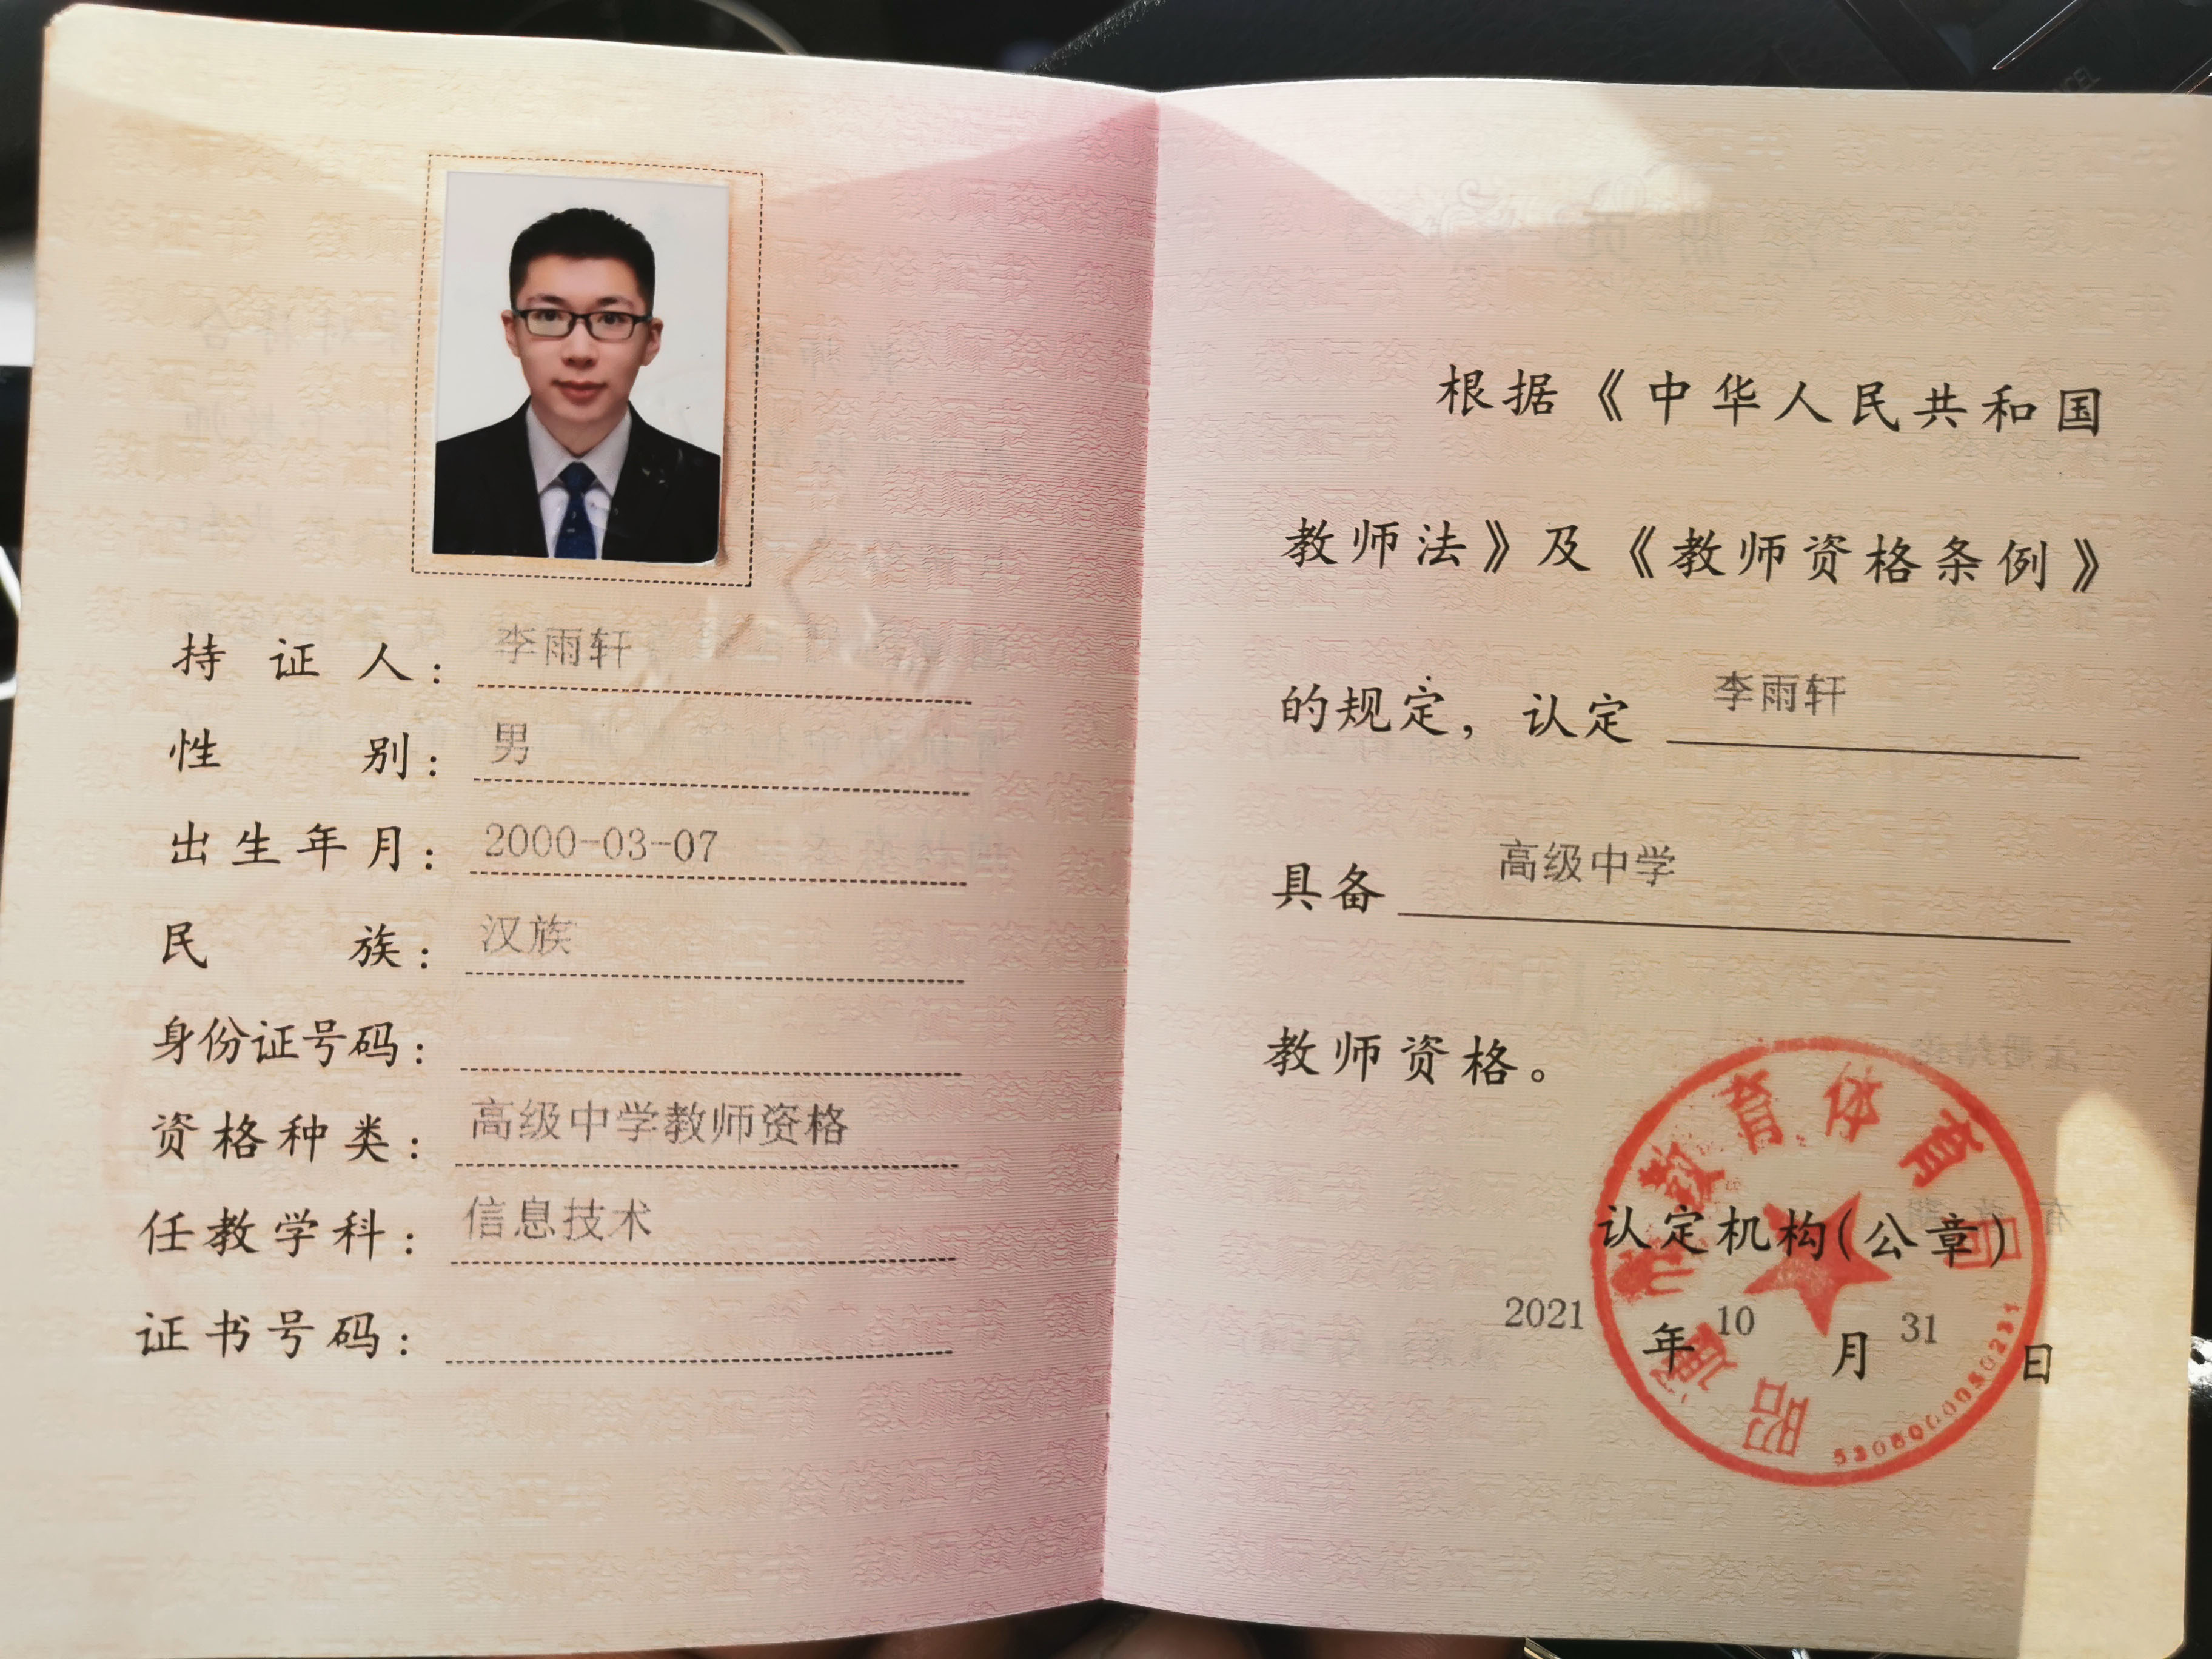 持证人：李雨轩
性别：男
出生年月：2000-03-07
民族：汉族
身份证号码：
资格种类：高级中学教师资格
任教学科：信息技术
证书号码：
根据《中华人民共和国
教师法》及《教师资格条例》
的规定，认定 李雨轩
具备 高级中学
教师资格。
昭通市教育体育局
认定机构(公章)
2021年10月31日